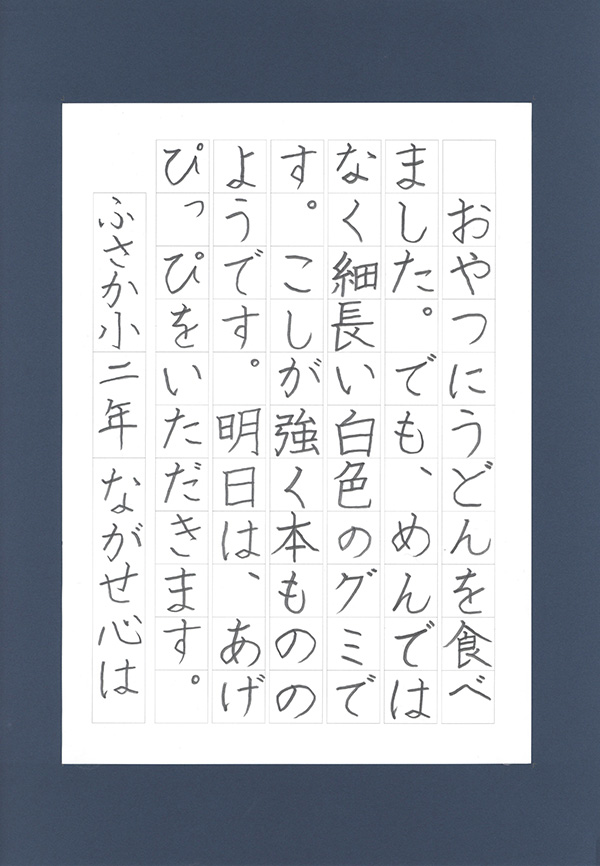 おやつにうどんを食べ
ました。でも、めんでは
なく細長い白色のグミで
す。こしが強く本ものの
ようです。明日は、あげ
ぴっぴをいただきます。
ふさか小二年ながせ心は